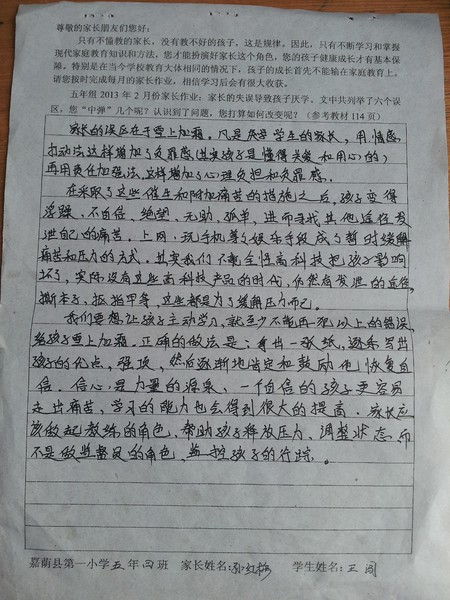 尊敬的家长朋友们您好:
只有不懂教的家长,没有教不好的孩子,这是规律。因此,只有不断学习和掌握
现代家庭教育知识和方法,您才能扮演好家长这个角色,您的孩子健康成长才有基本保
障。特别是在当今学校教育大体相同的情况下,孩子的成长首先不能输在家庭教育上。
请您按时完成每月的家长作业,相信学习后会有很大收获。
五年组 2013 年 2 月份家长作业:家长的失误导致孩子厌学。文中共列举了六个误
区,您“中弹”几个呢?认识到了问题,您打算如何改变呢?(参考教材 114 页)
家长的误区在于雪上加霜,凡是厌学学生的家长,用情感
打动法这样增加了负罪感(其实孩子是懂得关爱和用心的)
再用责任加强法,这样增加了心理负担和负罪感.
在采取了这些催互和附加痛苦的措施之后,孩子变得
浮躁、不自信、绝望、无助、孤单,进而寻找其他途径发
泄自己的痛苦。上网、玩手机等等娱乐手段成了暂时缓解
痛苦和压力的方式。其实我们不能全怪高科技把孩子影响
坏了,实际没有这些高科技产品的时代,仍然有发泄的途径,
撕本子、抠指甲等,这些都是为了缓解压力而已。
我们要想让孩子主动学习,就至少不能再犯以上的错误,
给孩子雪上加霜。正确的做法是:拿出一张纸,逐条写出
孩子的优点,强项,然后逐渐地肯定和鼓励他恢复自
信。信心是力量的源泉,一个自信的孩子更容易
走出痛苦,学习的能力也会得到很大的提高。家长应
该做起教练的角色,帮助孩子释放压力、调整状态,而
不是做监督员的角色,监控孩子的行踪。
嘉荫县第一小学五年四班 家长姓名:孙红梅 学生姓名:王闯